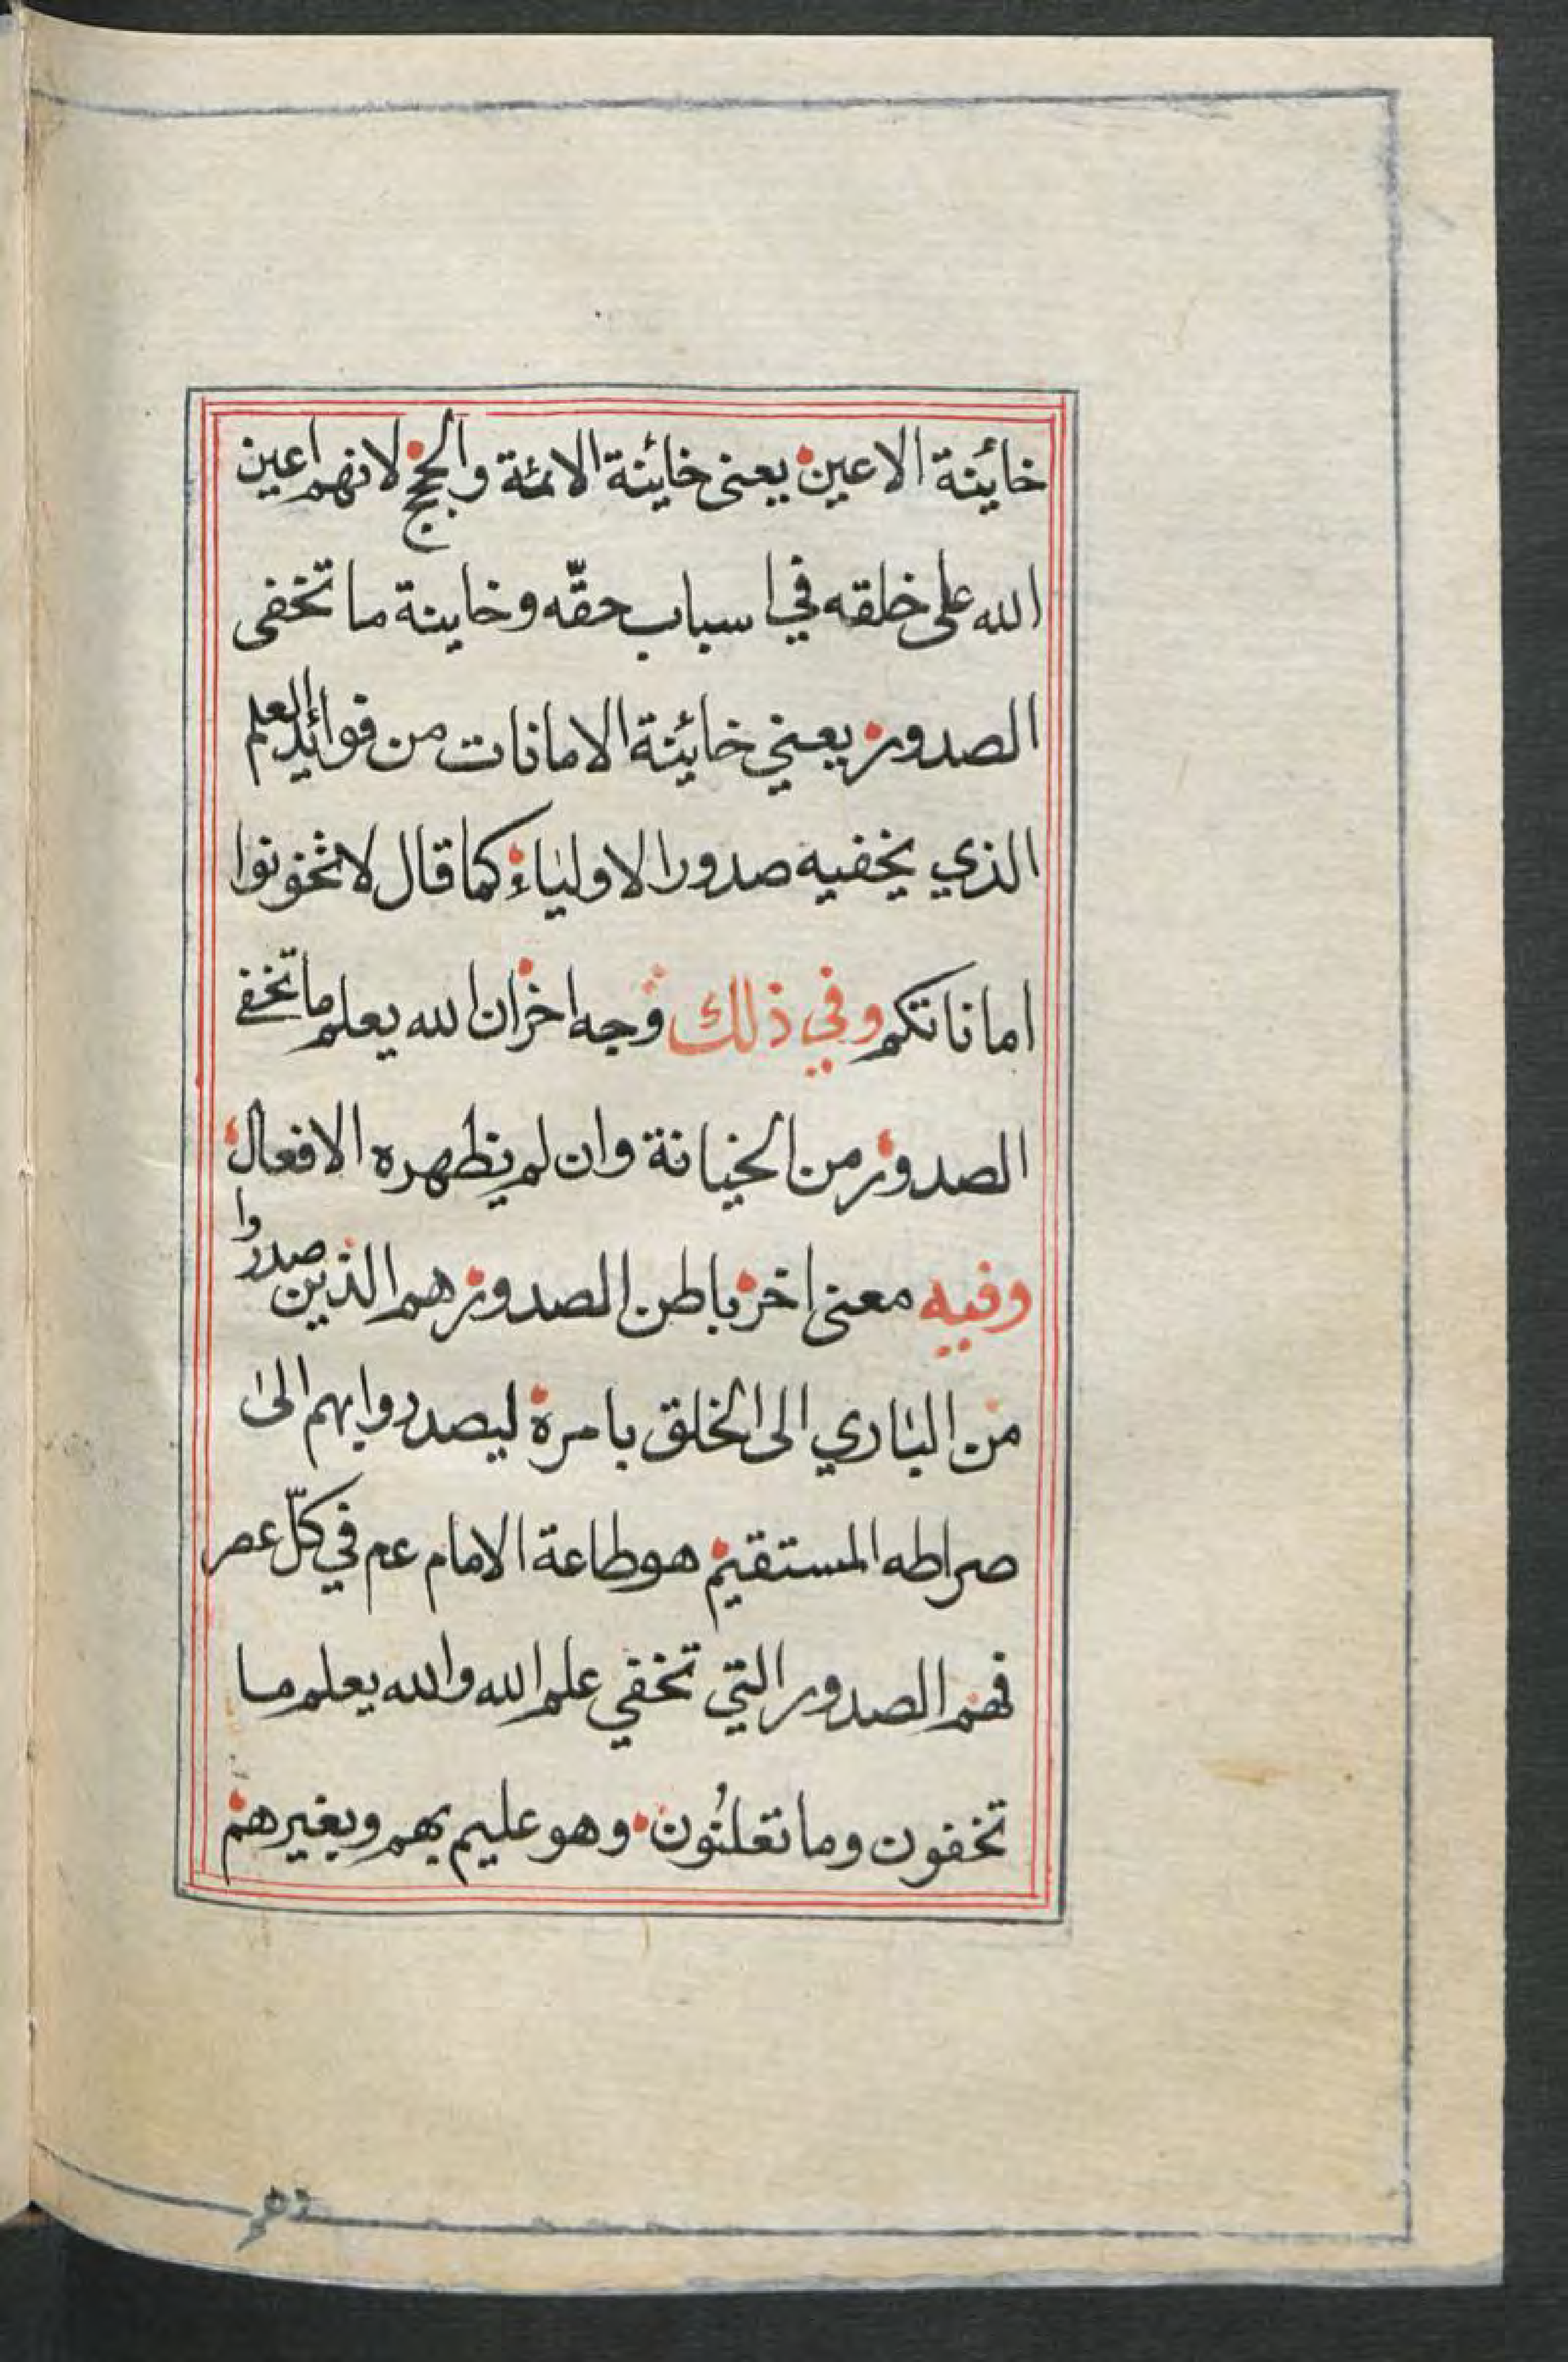 خائينة الاعين يعنى خائينة الائمة والحجج لانهم اعين
الله على خلقه في اسباب حقّه وخاينة ما تخفى
الصدور يعني خائينة الامانات من فوائيد العلم
الذي يخفيه صدور الاولياء كما قال لا تخونوا
اماناتكم وفي ذلك وجه اخر ان الله يعلم ما تخفي
الصدور من الخيانة وان لم يظهره الافعال
وفيه معنى اخر باطن الصدور هم الذين صدروا
من الباري الى الخلق بامره ليصدروا بهم الى
صراطه المستقيم هو طاعة الامام عم في كلّ عصر
فهم الصدور التي تخفي علم الله والله يعلم ما
تخفون وما تعلنون وهو عليم بهم وبغيرهم